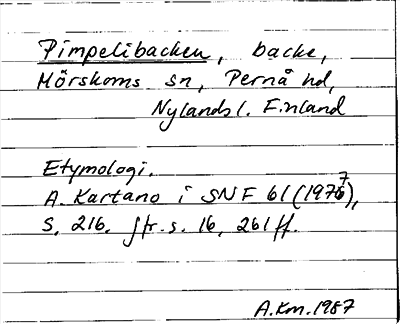 Pimpelibacken, backe,
Mörskoms sn, Pernå hd,
Nylands l. Finland
Etymologi.
A. Kartano i SNF 61 (1977),
S. 216. Jfr. s. 16, 261 ff.
A.Km. 1987